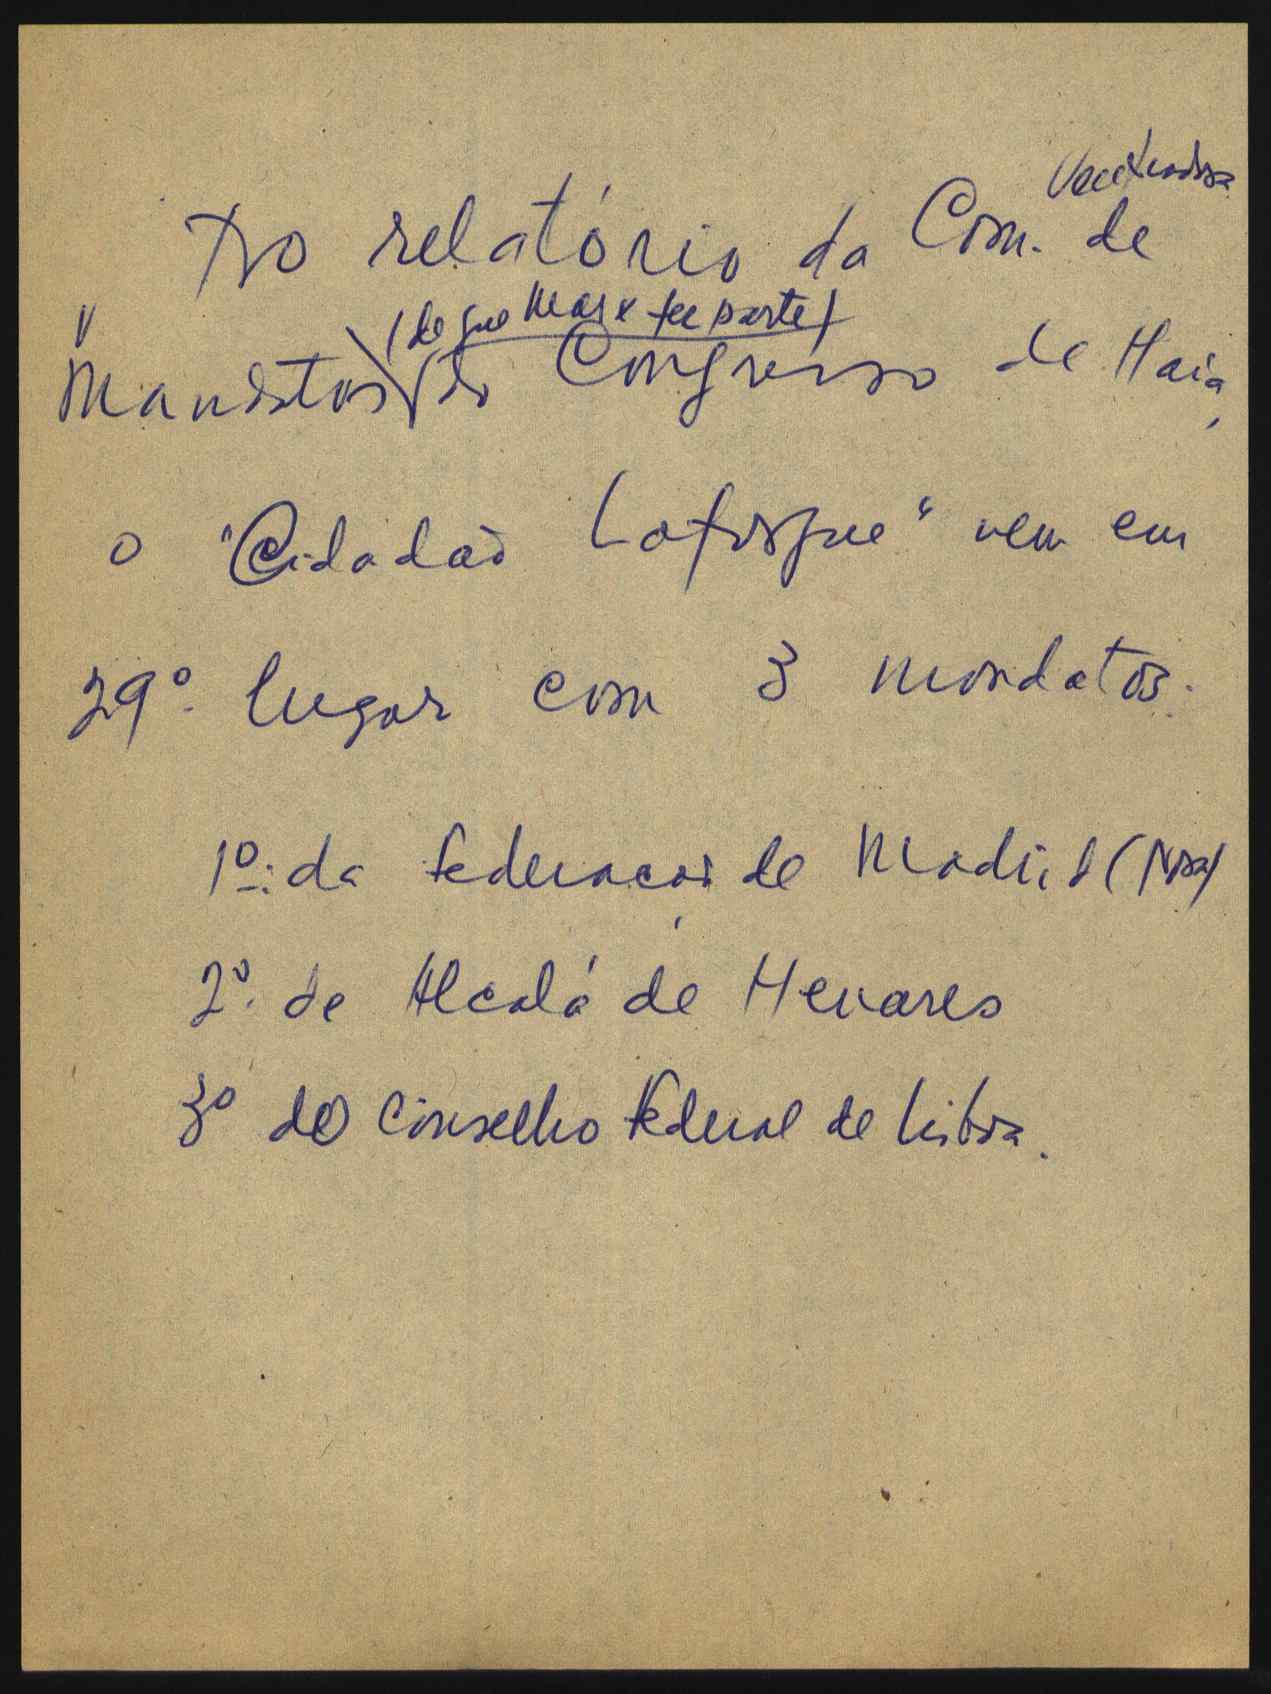 Verificadora
No relatório da Com. de
(de que Marx fez parte)
Mandatos do Congresso de Haia,
o "Cidadão Lafargue" vem em
29º. lugar com 3 mandatos.
1º: da Federação de Madrid (Nova)
2º. de Alcalá de Henares
3º do Conselho Federal de Lisboa.